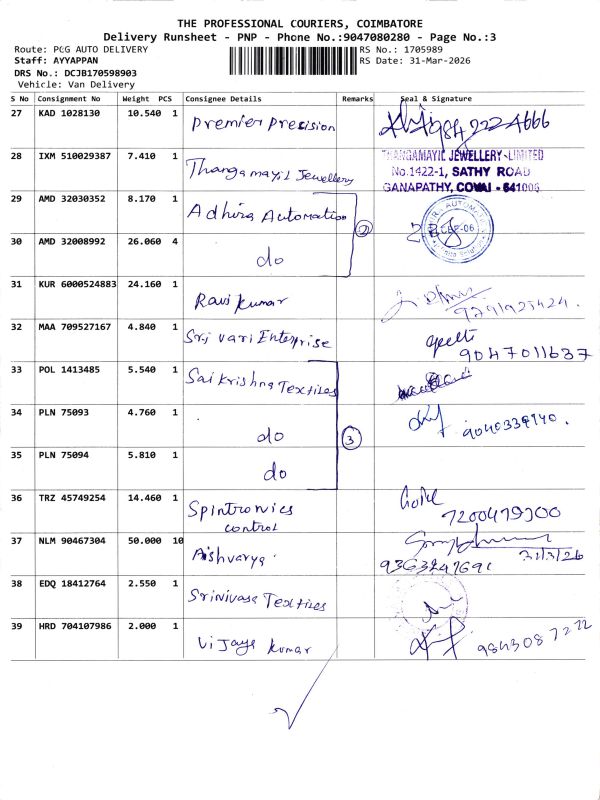 THE PROFESSIONAL COURIERS, COIMBATORE
Delivery Runsheet - PNP - Phone No.:9047080280 - Page No.:3
Route: PCG AUTO DELIVERY
RS No.: 1705989
Staff: AYYAPPAN
RS Date: 31-Mar-2026
DRS No.: DCJB170598903
Vehicle: Van Delivery
S No Consignment No Weight PCS Consignee Details Remarks Seal & Signature
27 KAD 1028130 10.540 1 Premier Precision 984 222 4666
28 IXM 510029387 7.410 1 Thangamayil Jewellery
THANGAMAYIL JEWELLERY LIMITED
No.1422-1, SATHY ROAD
GANAPATHY, COVAI - 641006
29 AMD 32030352 8.170 1 Adhira Automation
2
30 AMD 32008992 26.060 4 do
31 KUR 6000524883 24.160 1 Ravi Kumar
32 MAA 709527167 4.840 1 Sri vari Enterprise
9047011637
33 POL 1413485 5.540 1 Sai Krishna Textiles
34 PLN 75093 4.760 1 do 3
35 PLN 75094 5.810 1 do
36 TRZ 45749254 14.460 1 Spintronics control
7200479300
37 NLM 90467304 50.000 10 Aishvarya
31/3/26
9363247691
38 EDQ 18412764 2.550 1 Srinivasa Textiles
39 HRD 704107986 2.000 1 Vijaya Kumar 9843087272